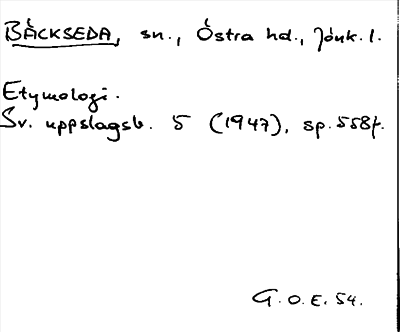 BÄCKSEDA, sn., Östra hd., Jönk. l.
Etymologi.
Sv. uppslagsb. 5 (1947), sp. 558f.
G.O.E. 54.